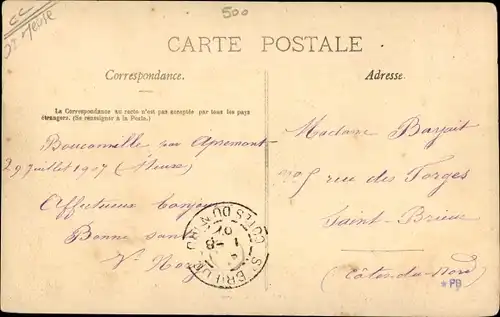 500
CC
Meuse
CARTE POSTALE
Correspondance.
Adresse.
La Correspondance au recto n'est pas acceptée par tous les pays
étrangers. (Se renseigner à la Poste.)
Bouconville par Apremont
29 Juillet 1907 (Meuse)
Affectueux bonjour
Bonne santé
Vve
Madame
5 rue des Forges
Saint-Brieuc
(Côtes-du-Nord)
ST BRIEUC
COTES DU NORD
1 - 8
07
*PD